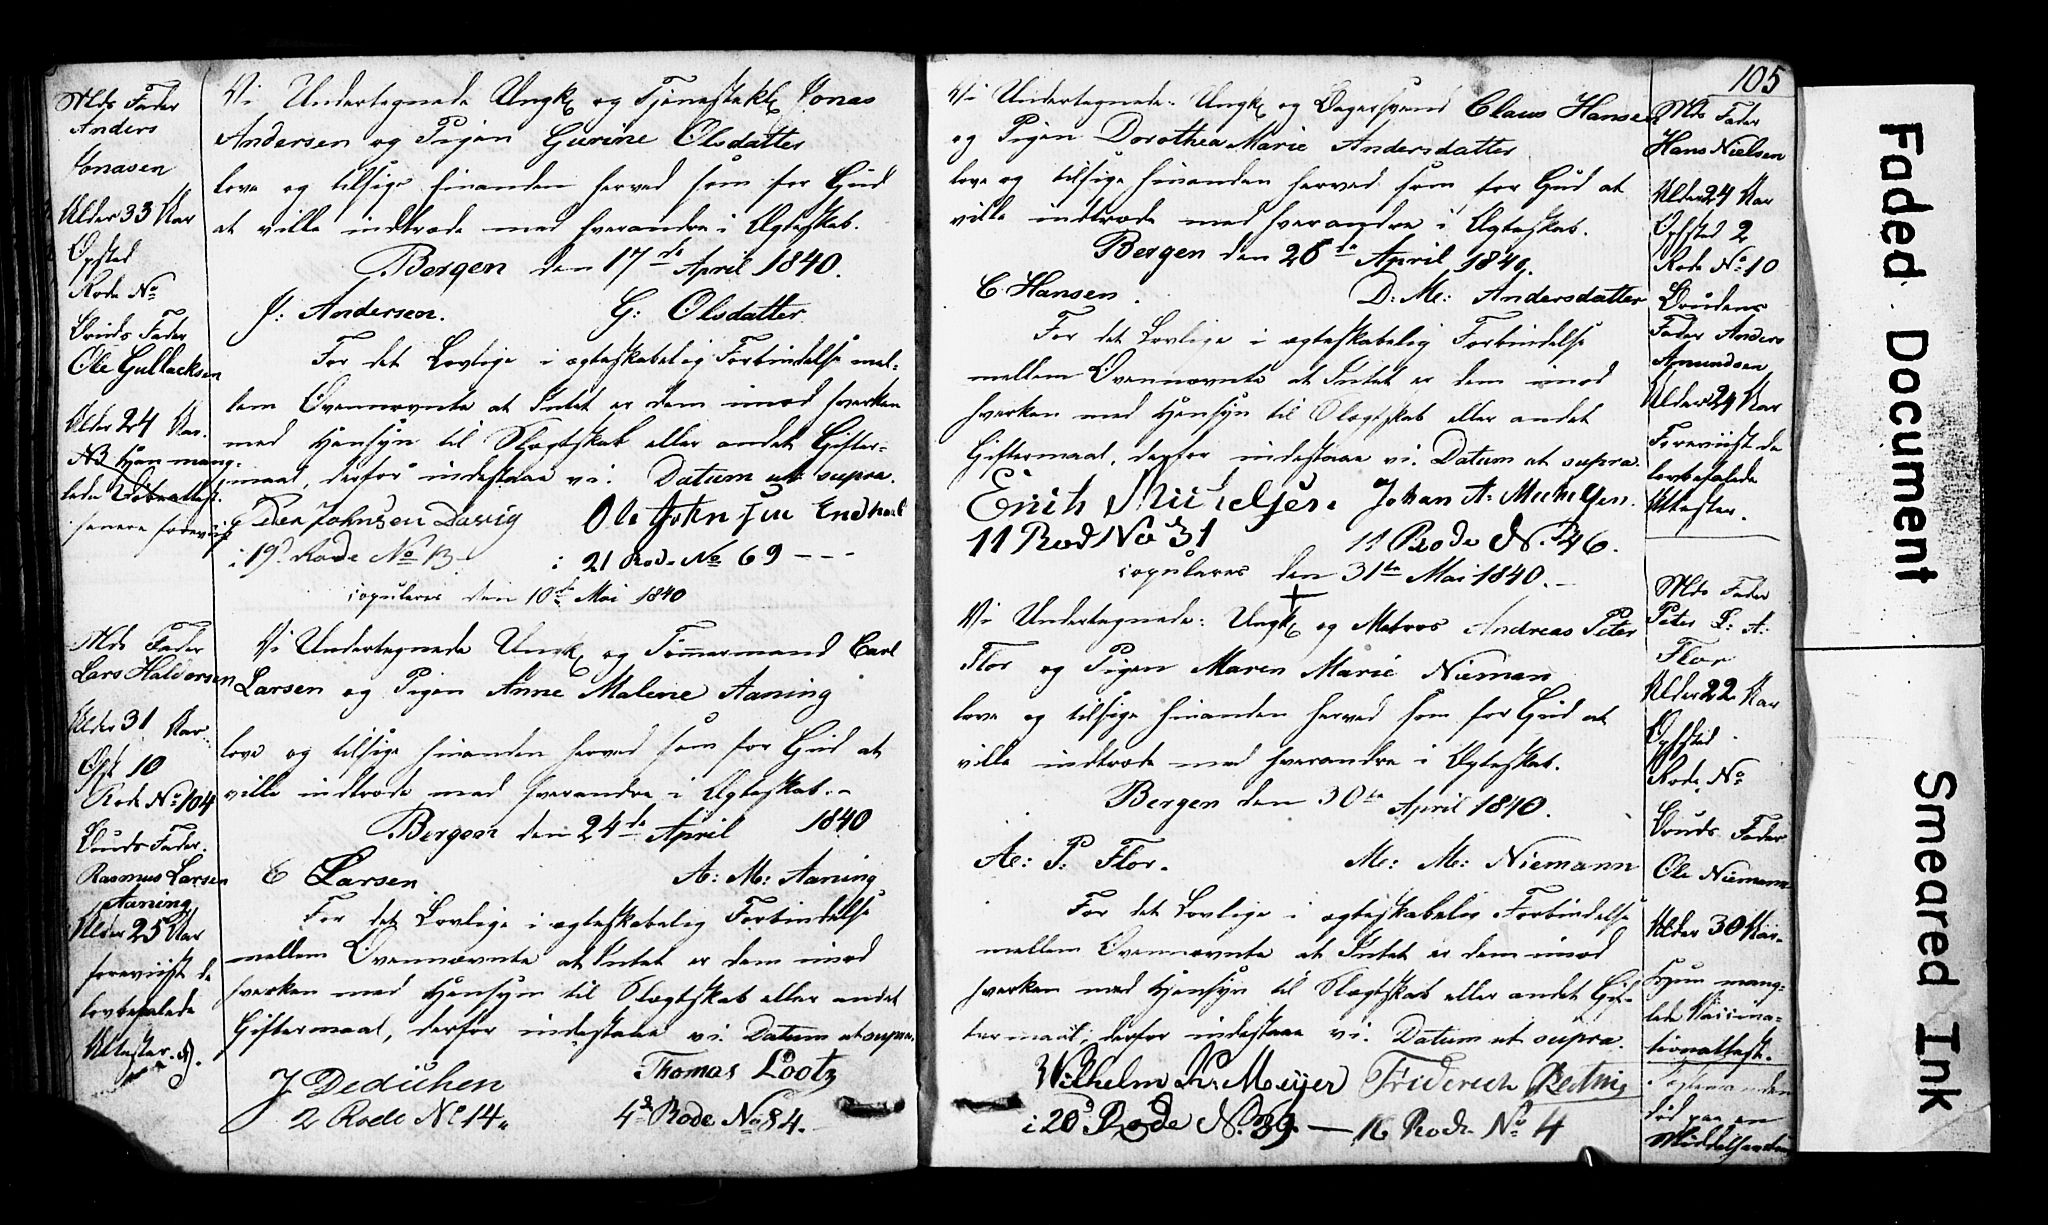 Mds Fader
Anders
Jonasen
Alder 33 Aar
Opsted
Rode No
Bruds Fader
Ole Gullacksen
Alder 24 Aar.
NB Hun mang-
lede Døbeattest.
senere foreviist
Vi Undertegnede Ungk og Tjenestekl Jonas
Andersen og Pigen Gurine Olsdatter
love og tilsige hinanden herved som for Gud
at ville indtræde med hverandre i Ægteskab.
Bergen den 17de April 1840.
J: Andersen. G: Olsdatter
For det Lovlige i ægteskabelig Forbindelse mel-
lem Ovennævnte at Intet er dem imod hverken
med Hensyn til Slægtskab eller andet Gifter-
maal, derfor indestaae vi. Datum ut supra.
Peder Johnsen Davig Ole Johnsen
i 19d Rode No 13 i 21 Rode No 69 - - -
copuleres den 10de Mai 1840
Mds Fader
Lars Haldorsen
Alder 31 Aar
Opst 10
Rode No 104
Bruds Fader.
Rasmus Larsen
Aaning
Alder 25 Aar
foreviist de
lovbefalede
Attester.
Vi Undertegnede Ungk og Tømmermand Carl
Larsen og Pigen Anne Malene Aaning
love og tilsige hinanden herved som for Gud at
ville indtræde med hverandre i Ægteskab.-
Bergen den 24de April 1840
C Larsen A: M: Aaning
For det Lovlige i ægteskabelig Forbindelse
mellem Ovennævnte at Intet er dem imod
hverken med Hensyn til Slægtskab eller andet
Giftermaal, derfor indestaae vi. Datum ut supra.
J Dedichen Thomas Lootz
2 Rode No 14. 4d Rode No 84.
105
Vi Undertegnede: Ungk og Bagersvend Claus Hansen
og Pigen Dorothea Marie Andersdatter
love og tilsige hinanden herved som for Gud at
ville indtræde med hverandre i Ægteskab.
Bergen den 28de April 1840.
C Hansen. D: M: Andersdatter
For det Lovlige i ægteskabelig Forbindelse
mellem Ovennævnte at Intet er dem imod
hverken med Hensyn til Slægtskab eller andet
Giftermaal, derfor indestaae vi. Datum ut supra.
Erich Michelsen. Johan A: Michelsen.
11 Rod No 31 11 Rode No 46.
copuleres den 31te Mai 1840.-
Mds Fader
Hans Nielsen
Alder 24 Aar
Opsted 2
Rode No 10
Brudens
Fader Anders
Amundsen
Alder 24 Aar
Foreviist de
lovbefalede
Attester.
Vi Undertegnede: Ungk og Matros Andreas Peter
Flor og Pigen Maren Marie Nieman
love og tilsige hinanden herved som for Gud at
ville indtræde med hverandre i Ægteskab.
Bergen den 30te April 1840.
A: P: Flor. M: M: Niemann
For det Lovlige i ægteskabelig Forbindelse
mellem Ovennævnte at Intet er dem imod
hverken med Hensyn til Slægtskab eller andet Gif-
termaal, derfor indestaae vi. Datum ut supra.
Wilhelm K: Meyer Friderich
i 20d Rode No. 39. — 16 Rode No 4
Mds Fader
Peter A:
Flor
Alder 22 Aar
Opsted.
Rode No
Bruds Fader
Ole Niemann
Alder 30 Aar.
Hun mang-
lede Vaccina-
tionattest.
død paa en
Faded Document
Smeared Ink